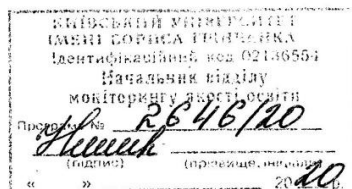 КИЇВСЬКИЙ УНІВЕРСИТЕТ
ІМЕНІ БОРИСА ГРІНЧЕНКА
Ідентифікаційний код 02136554
Начальник відділу
моніторингу якості освіти
Програма № 2646/20
(підпис) (прізвище, ініціали)
« » 2020 р.